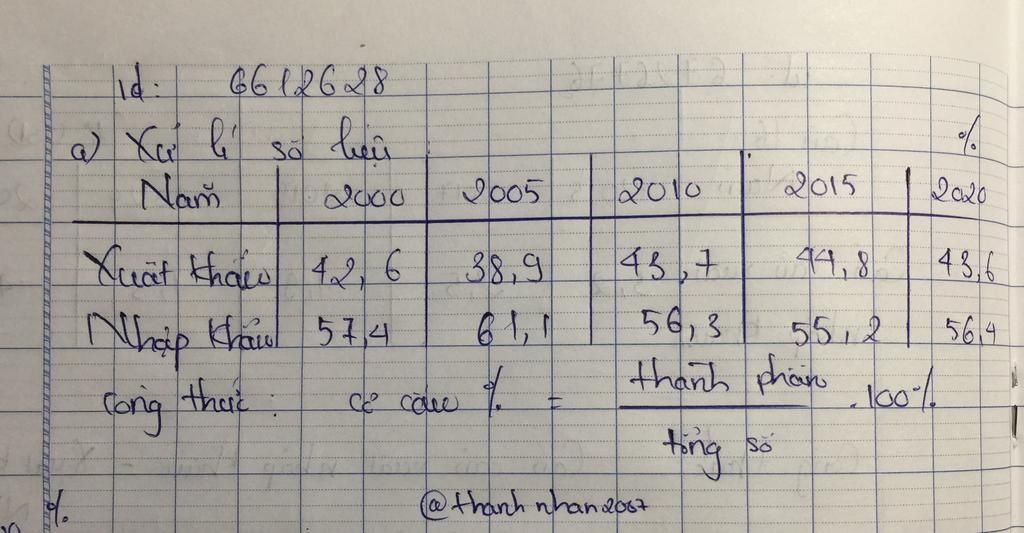 id: 6612628
a) Xử lí số liệu: %
Năm 2000 2005 2010 2015 2020
Xuất khẩu 42,6 38,9 43,7 44,8 43,6
Nhập khẩu 57,4 61,1 56,3 55,2 56,4
Công thức: cơ cấu % = thành phần / tổng số .100%
%
@thanhnhan2007